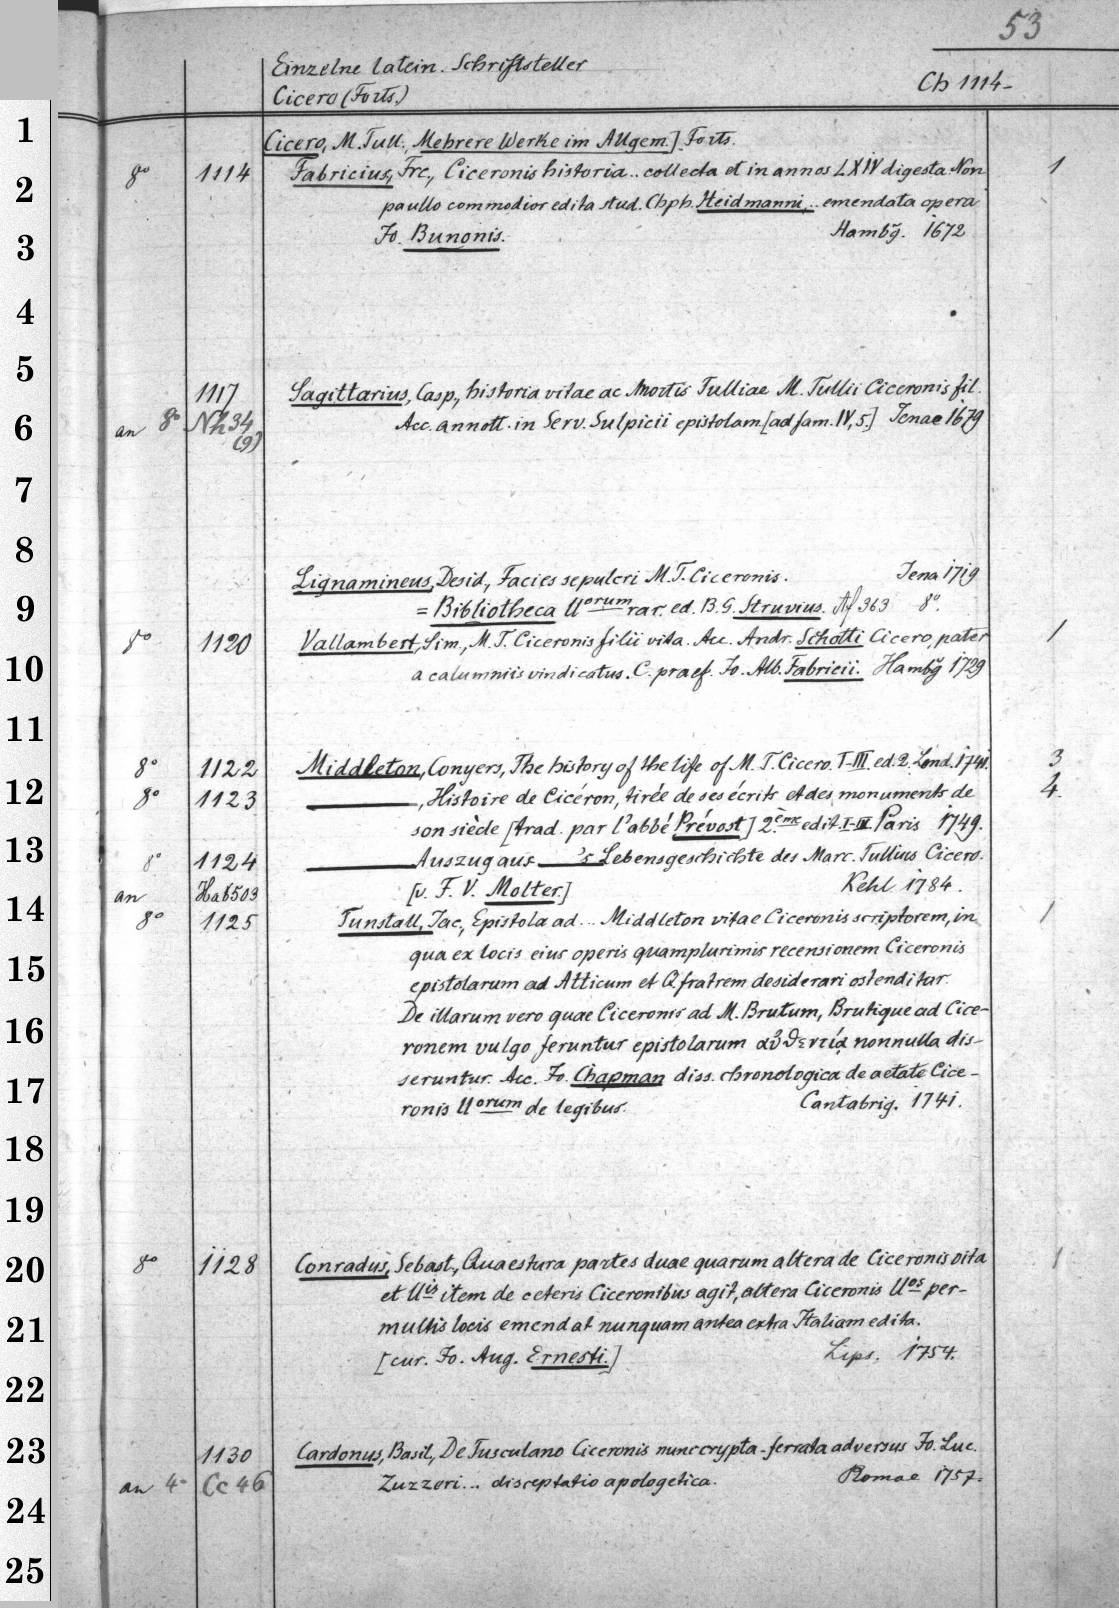 53
Einzelne latein. Schriftsteller
Cicero (Forts.)
Ch 1114-
1
Cicero, M. Tull., Mehrere Werke im Allgem.] Forts.
2
8° 1114 Fabricius, Frc., Ciceronis historia .. collecta et in annos LXIV digesta. Non 1
paullo commodior edita stud. Chph. Heidmanni, .. emendata opera
3
Jo. Bunonis. Hambg. 1672
4
5
1117 Sagittarius, Casp., historia vitae ac mortis Tulliae M. Tullii Ciceronis fil.
6
an 8° Nh 34 Acc. annott. in Serv. Sulpicii epistolam [ad fam. IV, 5.] Jenae 1679
(9)
7
8
Lignamineus, Desid., Facies sepulcri M. T. Ciceronis. Jena 1719
9
= Bibliotheca llorum rar. ed. B. G. Struvius. Af 363 8°.
8° 1120 Vallambert, Sim., M. T. Ciceronis filii vita. Acc. Andr. Schotti Cicero, pater 1
10
a calumniis vindicatus. C. praef. Jo. Alb. Fabricii. Hambg 1729
11
8° 1122 Middleton, Conyers, The history of the life of M. T. Cicero. T-III. ed. 2. Lond. 1741. 3
12
8° 1123 ———, Histoire de Cicéron, tirée de ses écrits et des monuments de 4.
son siède [trad. par l'abbé Prévost] 2.ème edit. I-IV. Paris 1749.
13
8° 1124 ——— Auszug aus ——'s Lebensgeschichte des Marc. Tullius Cicero.
an Hab 503 [v. F. V. Molter.] Kehl 1784.
14
8° 1125 Tunstall, Jac., Epistola ad ... Middleton vitae Ciceronis scriptorem, in 1
qua ex locis eius operis quamplurimis recensionem Ciceronis
15
epistolarum ad Atticum et Q fratrem desiderari ostenditur.
De illarum vero quae Ciceronis ad M. Brutum, Brutique ad Cice-
16
ronem vulgo feruntur epistolarum αὐθεντίᾳ nonnulla dis-
seruntur. Acc. Jo. Chapman diss. chronologica de aetate Cice-
17
ronis llorum de legibus. Cantabrig. 1741.
18
19
8° 1128 Conradus, Sebast., Quaestura partes duae quarum altera de Ciceronis vita 1
20
et llis item de ceteris Ciceronibus agit, altera Ciceronis llos per-
21
multis locis emendat nunquam antea extra Italiam edita.
[cur. Jo. Aug. Ernesti.] Lips. 1754.
22
23
1130 Cardonus, Basil., De Tusculano Ciceronis nunc crypta-ferrata adversus Jo. Luc.
an 4° Cc 46 Zuzzeri ... disceptatio apologetica. Romae 1757.
24
25